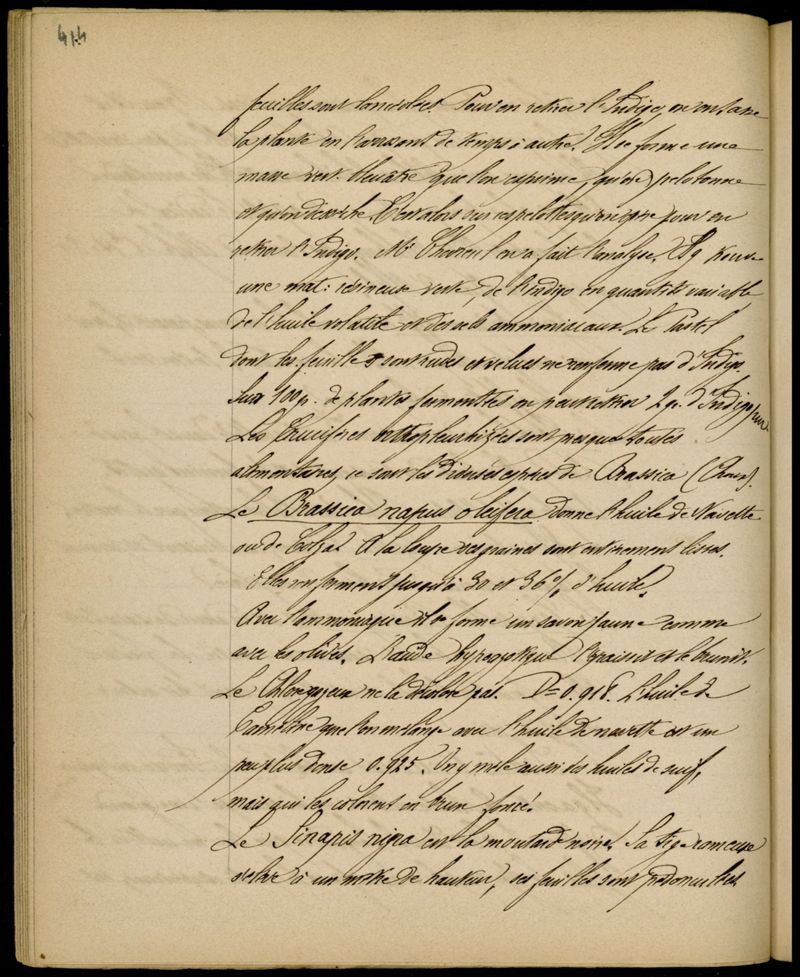 414
feuilles sont lancéolées. Pour en retirer l'Indigo, on entasse
la plante en l'arrosant de temps à autre. Il se forme une
masse vert-bleuâtre que l'on exprime, qu'on pelotonne
et qu'on dessèche. C'est alors sur ces pelottes qu'on opère pour en
retirer l'Indigo. Mr Chevreul en a fait l'analyse. Il y trouve
une mat: résineuse verte, de l'Indigo en quantité variable
de l'huile volatile et des sels ammoniacaux. Le Pastel
dont les feuilles sont rudes et velues ne renferme pas d'Indigo.
Sur 100 gr. de plantes fermentées on peut retirer 2 gr. d'Indigo pur.
Les Crucifères sont presque toutes
alimentaires, ce sont les diverses espèces de Brassica (Choux).
Le Brassica napus oleifera donne l'huile de Navette
ou de Colza. A la loupe ses graines sont entièrement lisses.
Elles renferment jusqu'à 30 et 36 % d'huile.
Avec l'ammoniaque il se forme un savon jaune comme
avec les olives. L'acide l'épaissit et le brunit.
Le Chlore gazeux ne la décolore pas. D = 0.918. L'huile de
Cameline que l'on mélange avec l'huile de navette est un
peu plus dense 0.925. On y mêle aussi des huiles de suif,
mais qui les colorent en brun foncé.
Le Sinapis nigra est la moutarde noire. Sa tige rameuse
s'élève à un mètre de hauteur, ses feuilles sont pédonculées